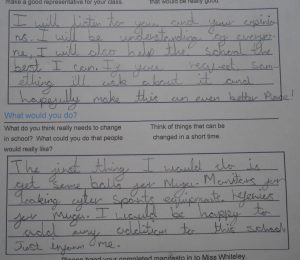 make a good representative for your class. that would be really good.
I will listen to you and your opinio
ns. I will be understanding of everyo
ne, I will also help the school the
best I can. If you request som
ething ill ask about it and
hopefully make this an even better Place!
What would you do?
What do you think really needs to change Think of things that can be
in school? What could you do that people changed in a short time.
would really like?
The first thing I would do is
get some balls for Muga. Monitors for
looking after sports equipment, referees
for muga. I would be happy to
add any addition to this school
Just inform me.
Please hand your completed manifesto in to Miss Whiteley.